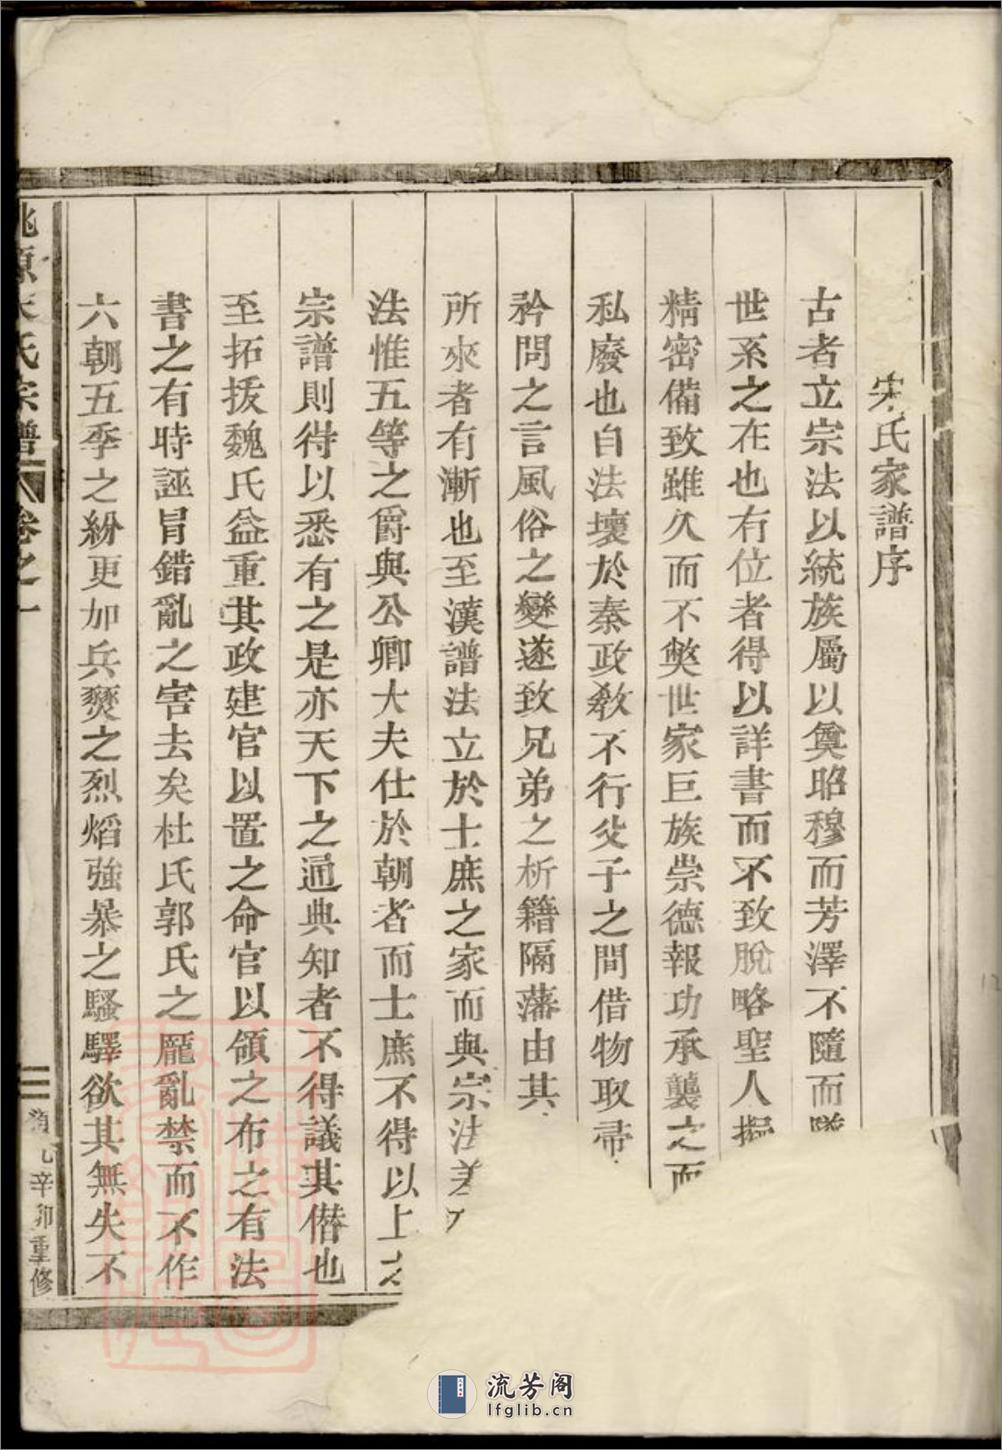 宋氏家譜序
古者立宗法以統族屬以奠昭穆而芳澤不隨而
世系之在也有位者得以詳書而不致脫略聖人
精密備致雖久而不獘世家巨族崇德報功承襲之而
私廢也自法壞於秦政教不行父子之間借物取帚
衿問之言風俗之變遂致兄弟之析籍隔藩由其
所來者有漸也至漢譜法立於士庶之家而與宗法
法惟五等之爵與公卿大夫仕於朝者而士庶不得以上
宗譜則得以悉有之是亦天下之通典知者不得議其僭也
至拓拔魏氏益重其政建官以置之命官以領之布之有法
書之有時誣冐錯亂之害去矣杜氏郭氏之厖亂禁而不作
六朝五季之紛更加兵燹之烈熖強暴之騷驛欲其無失不
源宋氏宗譜 卷之一
二 辛卯重修
流芳阁
lfglib.cn